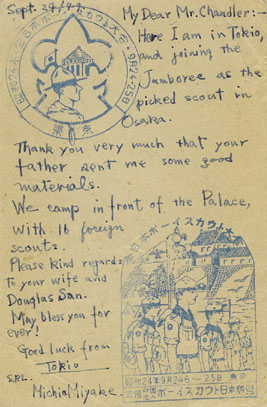 Sept. 24/'49
My Dear Mr. Chandler:–
Here I am in Tokio,
and joining the
Jamboree as the
picked scout in
Osaka.
昭和24年・全日本ボーイスカウト大会・9月24-25日
東京
Thank you very much that your
father sent me some good
materials.
We camp in front of the Palace,
with 16 foreign
scouts.
Please kind regards
to your wife and
Douglas San.
May bless you for
ever!
Good luck from
Tokio
S.P.L.
Michio Miyake.
全日本ボーイスカウト大会
昭和24年9月24日-25日 東京
ボーイスカウト日本連盟